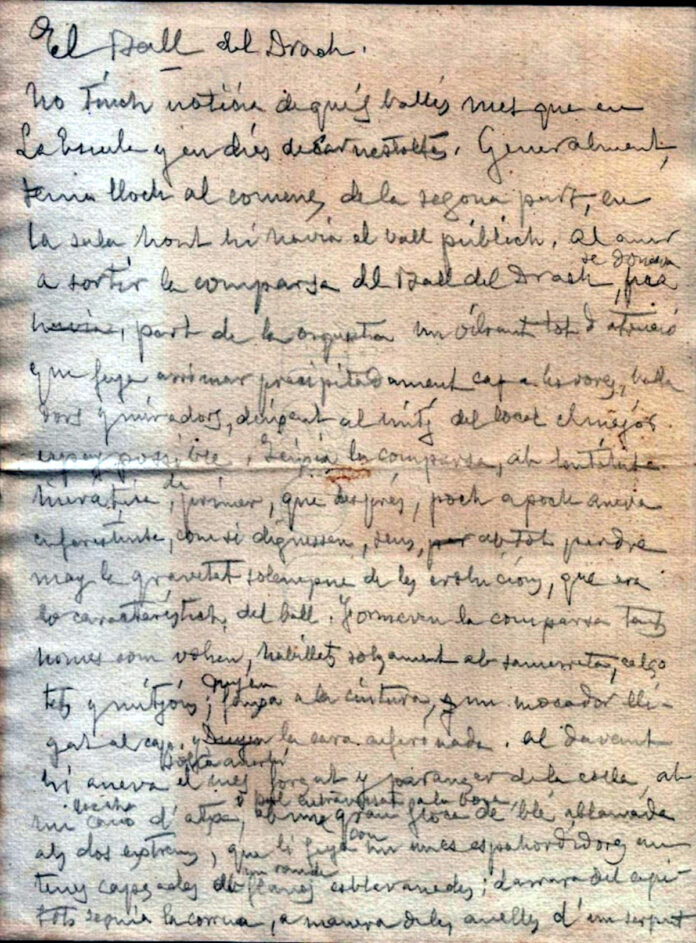 El Ball del Drach.
No tinch noticia de qués ballés mes que en
La Escala y en dies de Carnestoltes. Generalment,
tenia lloch al comens de la segona part, en
la sala hont hi havia el ball públich. Al anar
a sortir la comparsa del Ball del Drach, se donava
havia, part de la orquesta un vibrant toch d'atenció
que feya arrimar precipitadament cap a les vores, balla
dors y miradors, deixant al mitj del local el major
espay possible. Seguia la comparsa, ab lentitut
hieratica, de primer, que després, poch a poch anava
enforintse, com si diguessem, sens, per ab tot perdre
may la gravetat solempne de les evolucions, que era
lo caracteristich del ball. Formaven la comparsa tants
homes com volien, habillets solzament ab samarreta, calço
tets y mitjons; duyen faixa a la cintura, y un mocador lli-
gat al cap, y Duyen la cara enfarinada. Al davant
hi anava el mes forçut y de la colla, ab
un d'
als dos extrems, que li feya com unes
; darrera del capi-
tost seguia la corrua, a manera de les anelles d'un serpent